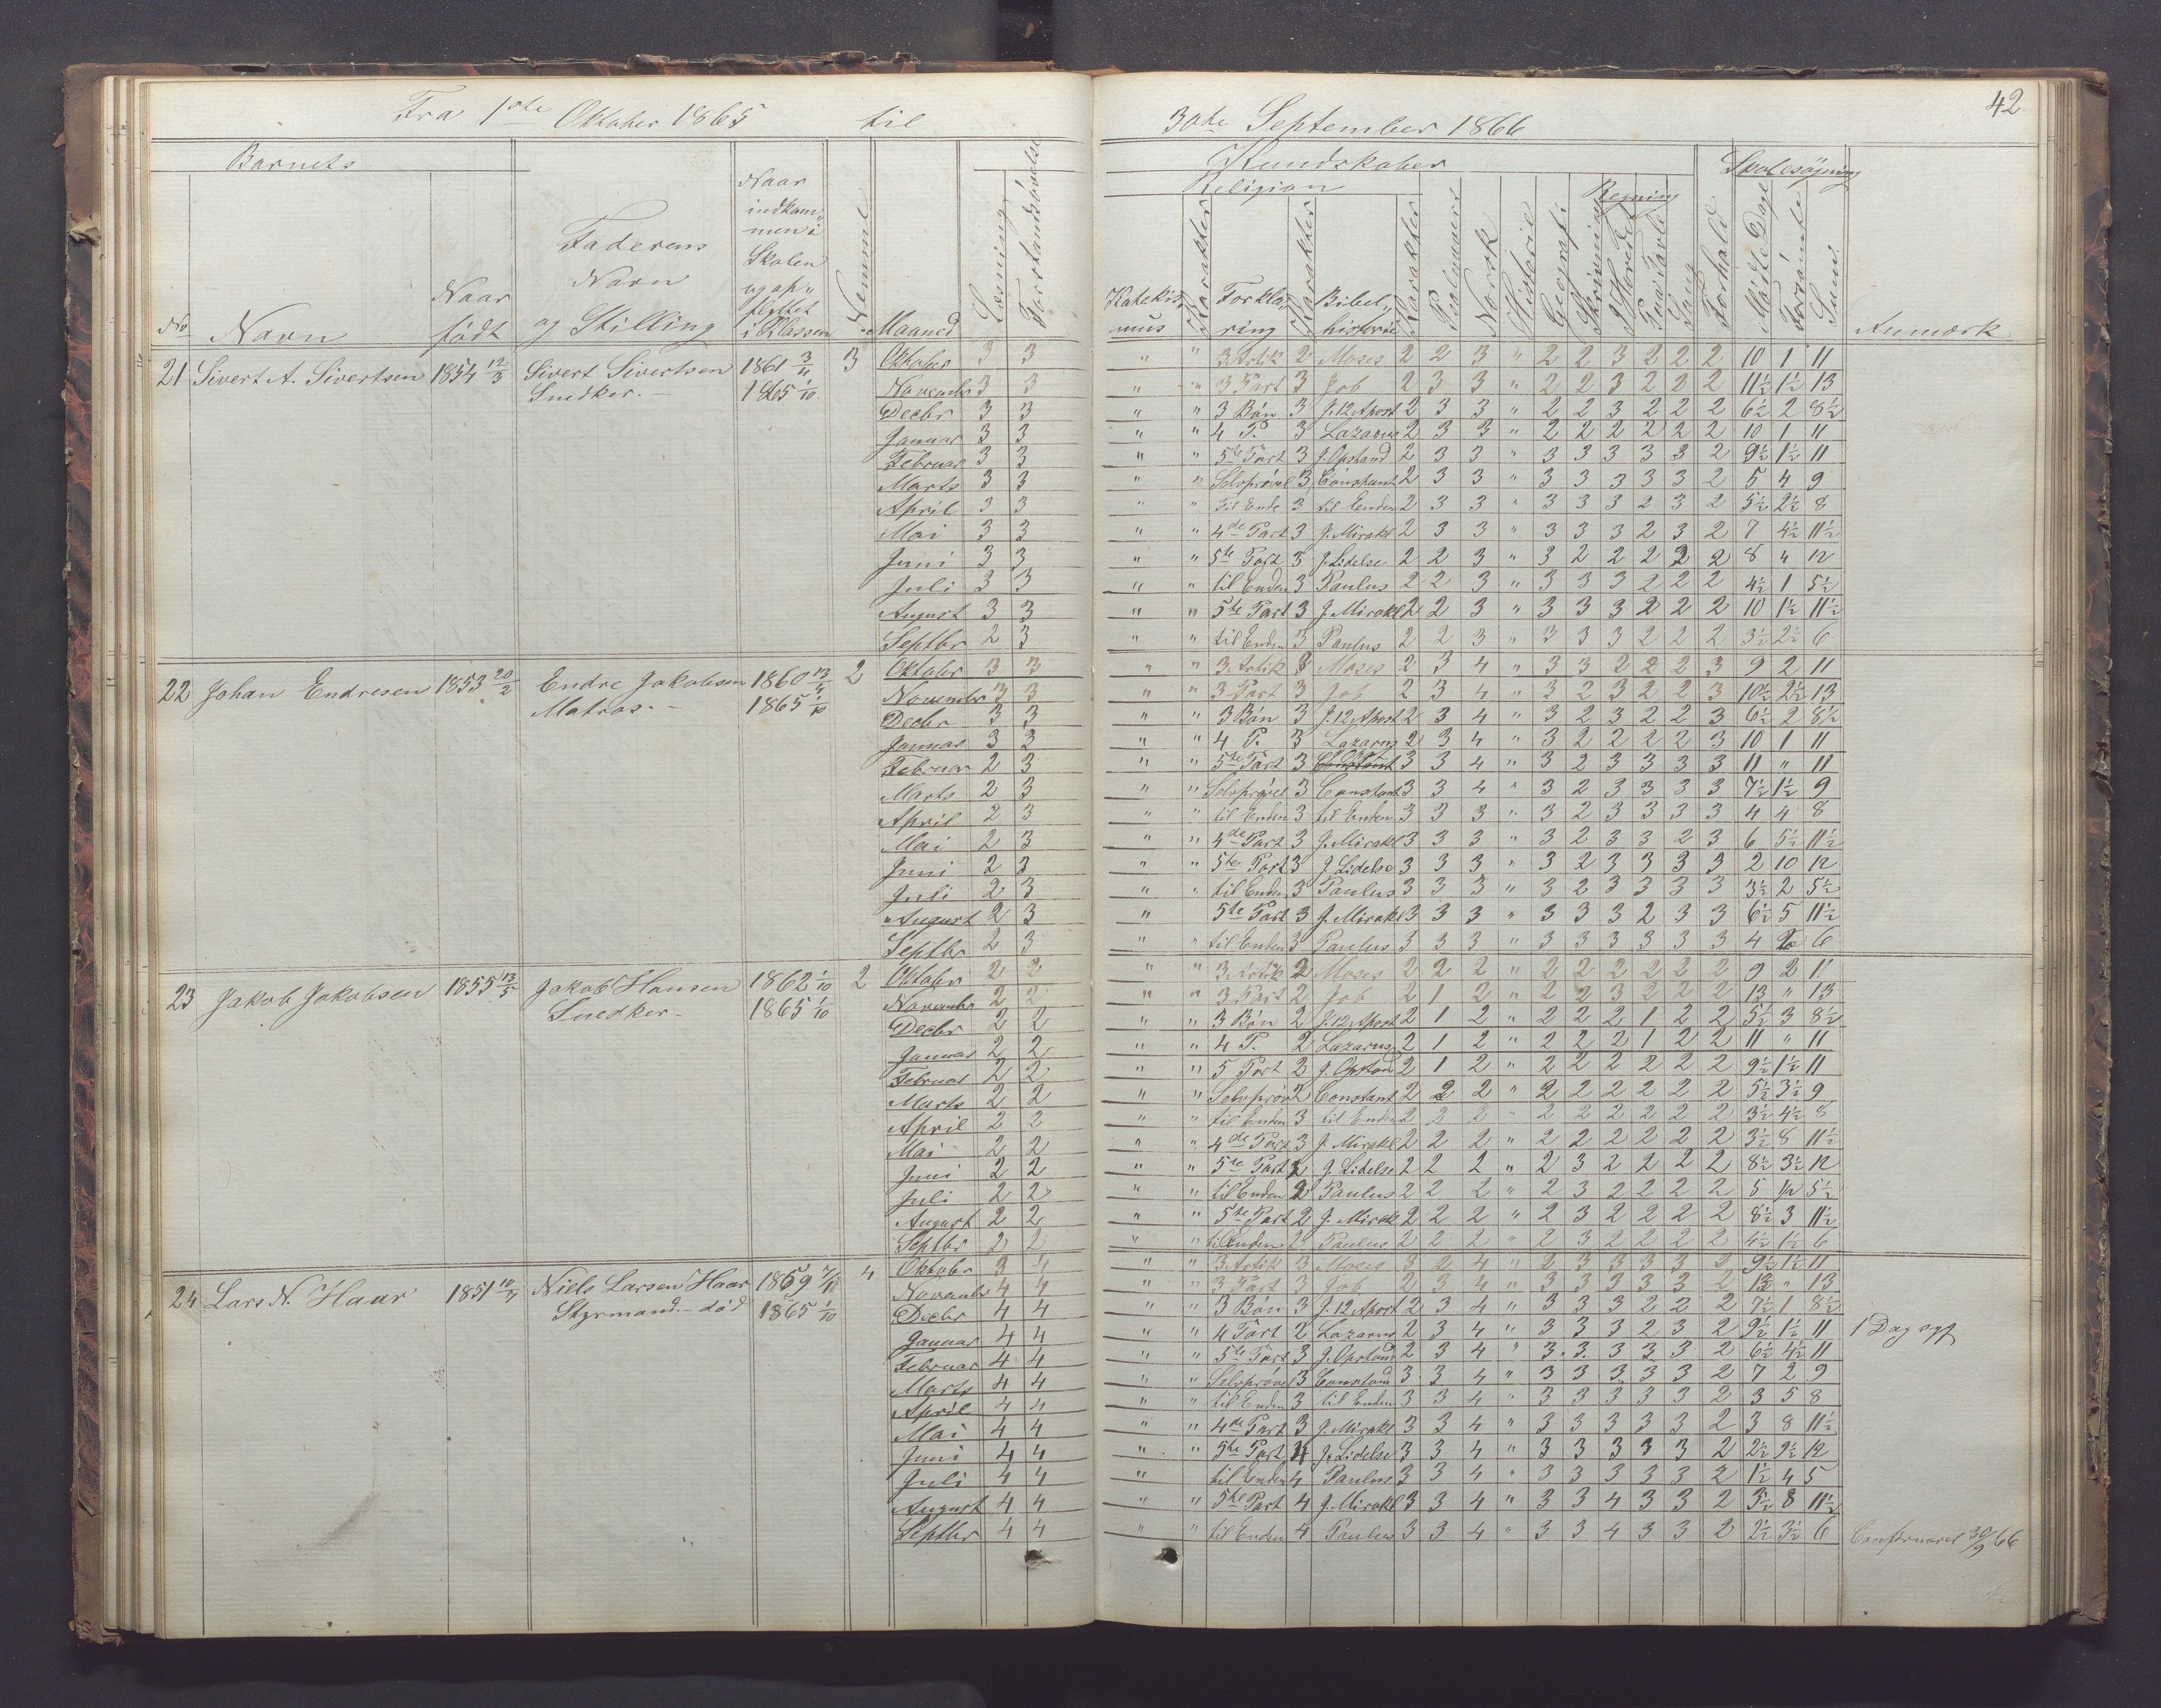 Fra 1ste Oktober 1865 til 30te September 1866
42
Barnets
Kundskaber
Skolesøgning
Religion
Regning
No
Navn
Naar født
Faderens Navn og Stilling
Naar indkommen i Skolen og opflyttet i Klassen
Nemme
Maaned
Læsning
Forstandsøvelse
Katekismus
Karakter
Forklaring
Karakter
Bibelhistorie
Karakter
Psalmevers
Norsk
Historie
Geografi
Skrivning
I Hovedet
Paa Tavle
Sang
Forhold
Mødte Dage
Forsømte
Sum
Anmærk
21 Sivert A. Sivertsen 1854 12/3 Sivert Sivertsen Snedker. 1861 3/11 1865 1/10 3
Oktober 3 3 " " 3 Artik 2 Moses 2 2 3 " 2 2 3 2 2 2 10 1 11
Novembr 3 3 " " 3 Part 3 Job 2 3 3 " 2 2 3 2 2 2 11½ 1½ 13
Decbr 3 3 " " 3 Bøn 3 J. 12 Apost 2 3 3 " 2 2 3 2 2 2 6½ 2 8½
Januar 3 3 " " 4 P. 3 Lazarus 2 3 3 " 2 2 2 2 2 2 10 1 11
Februar 3 3 " " 5te Part 3 J. Opstand 2 3 3 " 3 3 3 3 3 2 9½ 1½ 11
Marts 3 3 " " Selvprøvel 3 Constant 2 3 3 " 3 3 3 3 3 2 5 4 9
April 3 3 " " til Ende 3 til Enden 2 3 3 " 3 3 3 2 3 2 5½ 2½ 8
Mai 3 3 " " 4de Part 3 J. Mirakl 2 3 3 " 3 3 3 2 3 2 7 4½ 11½
Juni 3 3 " " 5te Part 3 J. Lidelse 2 2 3 " 3 2 2 2 2 2 8 4 12
Juli 3 3 " " til Enden 3 Paulus 2 2 3 " 3 3 3 2 2 2 4½ 1 5½
August 3 3 " " 5te Part 3 J. Mirakl 2 2 3 " 3 3 3 2 2 2 10 1½ 11½
Septbr 2 3 " " til Enden 3 Paulus 2 2 3 " 3 3 3 2 2 2 3½ 2½ 6
22 Johan Endresen 1853 20/2 Endre Jakobsen Matros. 1860 13/4 1865 1/10 2
Oktobr 3 3 " " 3 Artik 3 Moses 2 3 4 " 3 3 2 2 2 3 9 2 11
Novembr 3 3 " " 3 Part 3 Job 2 3 4 " 3 2 3 2 2 3 10½ 2½ 13
Decbr 3 3 " " 3 Bøn 3 J. 12 Apost 2 3 4 " 3 2 3 2 2 3 6½ 2 8½
Januar 3 3 " " 4 P. 3 Lazarus 2 3 4 " 3 2 2 2 2 3 10 1 11
Februar 2 3 " " 5te Part 3 Constant 3 3 4 " 3 2 3 3 3 3 11 " 11
Marts 2 3 " " Selvprøvel 3 Constant 3 3 4 " 3 2 3 3 3 3 7½ 1½ 9
April 2 3 " " til Enden 3 til Enden 3 3 3 " 3 2 3 3 3 3 4 4 8
Mai 2 3 " " 4de Part 3 J. Mirakl 3 3 3 " 3 2 3 3 2 3 6 5½ 11½
Juni 2 3 " " 5te Part 3 J. Lidelse 3 3 3 " 3 2 3 3 3 3 2 10 12
Juli 2 3 " " til Enden 3 Paulus 3 3 3 " 3 2 3 3 3 3 3½ 2 5½
August 2 3 " 5te Part 3 J. Mirakl 3 3 3 " 3 3 3 2 3 3 6½ 5 11½
Septbr 2 3 " " til Enden 3 Paulus 3 3 3 " 3 3 3 3 3 3 4 2 6
23 Jakob Jakobsen 1855 13/5 Jakob Hansen Snedker 1862 1/10 1865 1/10 2
Oktobr 2 2 " " 3 Artik 2 Moses 2 2 2 " 2 2 2 2 2 2 9 2 11
Novembr 2 2 " " 3 Part 2 Job 2 1 2 " 2 2 3 2 2 2 13 " 13
Decbr 2 2 " " 3 Bøn 2 J. 12 Apost 2 1 2 " 2 2 2 1 2 2 5½ 3 8½
Januar 2 2 " " 4 P. 2 Lazarus 2 1 2 " 2 2 2 1 2 2 11 " 11
Februar 2 2 " " 5 Part 2 J. Opstand 2 1 2 " 2 2 2 2 2 2 9½ 1½ 11
Marts 2 2 " " Selvprøv 2 Constant 2 2 2 " 2 2 2 2 2 2 5½ 3½ 9
April 2 2 " " til Enden 3 til Enden 2 2 2 " 2 2 2 2 2 2 3½ 4½ 8
Mai 2 2 " " 4de Part 3 J. Mirakl 2 2 2 " 2 2 2 2 2 2 3½ 8 11½
Juni 2 2 " " 5te Part 2 J. Lidelse 2 2 2 " 2 3 2 2 2 2 8½ 3½ 12
Juli 2 2 " " til Enden 2 Paulus 2 2 2 " 2 3 2 2 2 2 5 ½ 5½
August 2 2 " " 5te Part 2 J. Mirakl 2 2 2 " 2 3 2 2 2 2 8½ 3 11½
Septbr 2 2 " " til Enden 2 Paulus 2 2 2 " 2 3 2 2 2 2 4½ 1½ 6
24 Lars N. Haar 1851 Niels Larsen Haar Styrmand. - død 1865 1/10 4
Oktobr 3 4 " " 3 Artik 3 Moses 3 2 4 " 2 3 3 3 3 2 9½ 1½ 11
Novembr 4 4 " " 3 Part 3 Job 2 3 4 " 3 3 3 3 3 2 13 " 13
Decbr 4 4 " " 3 Bøn 3 J. 12 Apost 2 3 4 " 3 3 3 2 2 2 7½ 1 8½
Januar 4 4 " " 4 Part 2 Lazarus 2 3 4 " 3 3 3 2 3 2 9½ 1½ 11 1 Dag syg
Februar 4 4 " " 5te Part 3 J. Opstand 2 3 4 " 3 3 3 3 3 2 6½ 4½ 11
Marts 4 4 " " Selvprøvel 3 Constand 3 3 4 " 3 3 3 3 3 2 7 2 9
April 4 4 " " til Enden 3 til Enden 3 3 4 " 3 3 3 3 3 2 3 5 8
Mai 4 4 " " 4de Part 3 J. Mirakl 3 3 4 " 3 3 3 3 3 2 3 8 11½
Juni 4 4 " " 5te Part 4 J. Lidelse 3 3 4 " 3 3 3 3 3 2 2½ 9½ 12
Juli 4 4 " til Enden 4 Paulus 3 3 4 " 3 3 3 3 3 2 1½ 4 5
August 4 4 " " 5te Part 4 J. Mirakl 3 3 4 " 3 3 4 3 3 2 3½ 8 11½
Septbr 4 4 " " til Enden 4 Paulus 3 3 4 " 3 3 4 3 3 2 2½ 3½ 6 Confirmeret 30/9 66